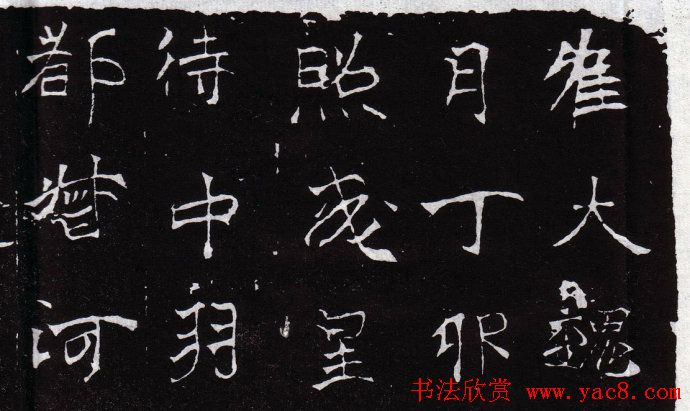 隹大魏
月丁卯
照成皇
待中羽
都督河
书法欣赏 www.yac8.com